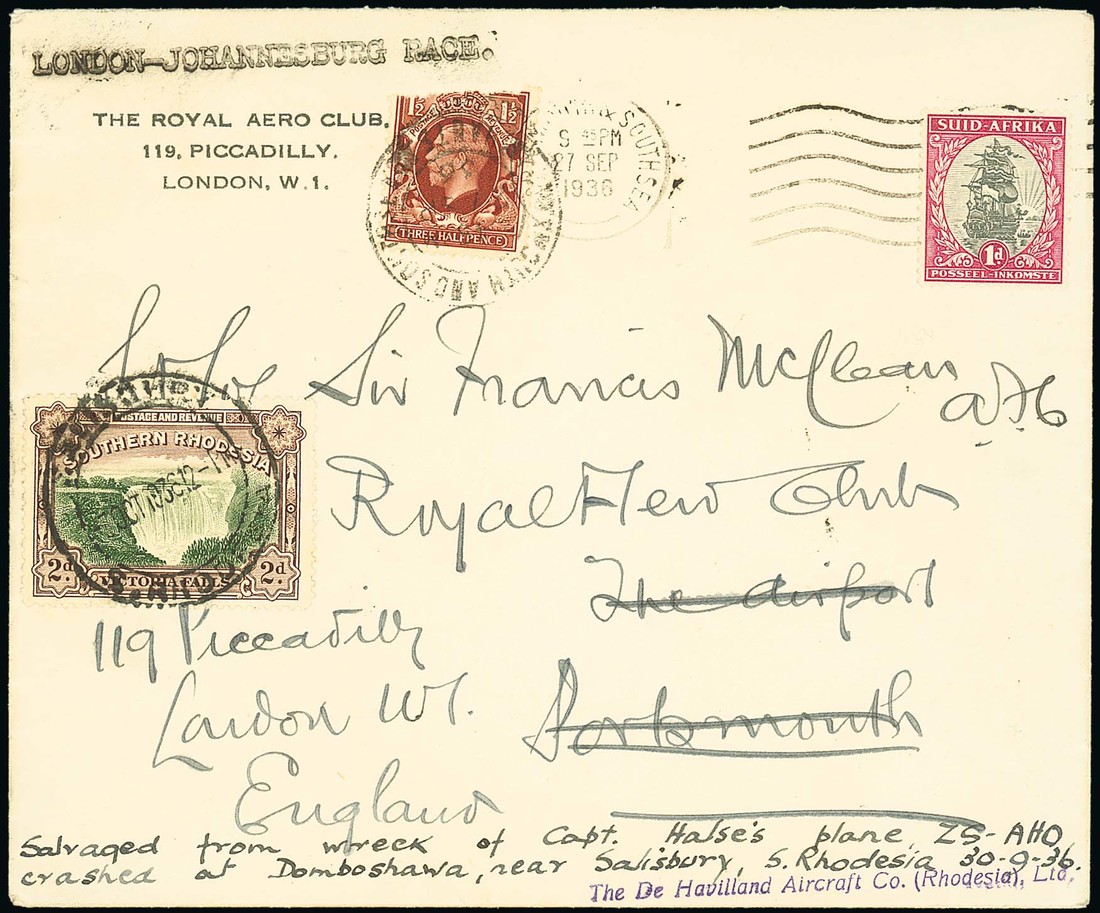 LONDON—JOHANNESBURG RACE.
THE ROYAL AERO CLUB.
119, PICCADILLY.
LONDON, W.1.
1½ 1½
POSTAGE
THREE HALFPENCE
& SOUTHSEA
9 45PM
27 SEP
1936
SUID-AFRIKA
1d
POSSEEL-INKOMSTE
Sir Francis McClean
Royal Aero Club
The Airport
Portsmouth
POSTAGE AND REVENUE
SOUTHERN RHODESIA
2d 2d
VICTORIA FALLS
119 Piccadilly
London W1.
England
Salvaged from wreck of Capt. Halse's plane ZS-AHO,
crashed at Domboshawa, near Salisbury, S. Rhodesia 30-9-36.
The De Havilland Aircraft Co. (Rhodesia), Ltd.